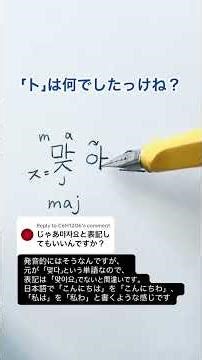 「ト」は何でしたっけね？
m a ~
맞 아
ス= j
maj
Reply to CoH1206's comment
じゃあ마자요と表記し
てもいいんですか？
発音的にはそうなんですが、
元が「맞다」という単語なので、
表記は「맞아요」でないと間違いです。
日本語で「こんにちは」を「こんにちわ」、
「私は」を「私わ」と書くような感じです